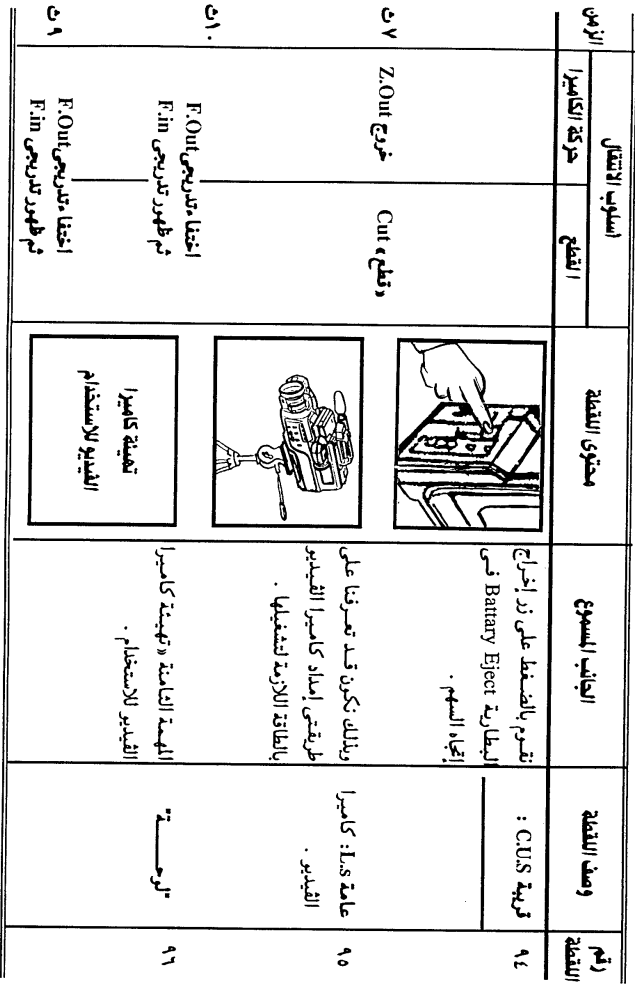 رقم
اللقطة
وصف اللقطة
الجانب المسموع
محتوى اللقطة
اسلوب الانتقال
القطع
حركة الكاميرا
الزمن
٩٤
قريبة C.U.S :
نقوم بالضغط على زر إخراج
البطارية Battary Eject فى
إتجاه السهم .
«قطع» Cut
خروج Z.Out
٧ث
٩٥
عامة L.s: كاميرا
الڤيديو .
وبذلك نكون قد تعرفنا على
طريقتى إمداد كاميرا الڤيديو
بالطاقة اللازمة لتشغيلها .
اختفاء تدريجى F.Out
ثم ظهور تدريجى F.in
١٠ث
٩٦
"لوحـــة"
المهمة الثامنة «تهيئة كاميرا
الڤيديو للاستخدام .
تهيئة كاميرا
الڤيديو للاستخدام
اختفاء تدريجى F.Out
ثم ظهور تدريجى F.in
٩ث